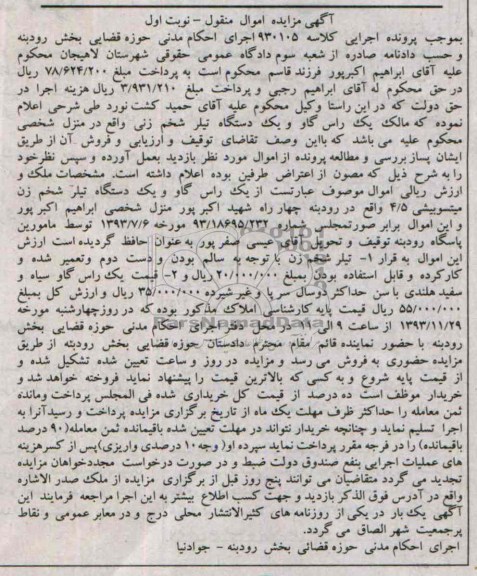 آگهی مزایده اموال منقول - نوبت اول
بموجب پرونده اجرایی کلاسه ۹۳۰۱۰۵ اجرای احکام مدنی حوزه قضایی بخش رودبنه
و حسب دادنامه صادره از شعبه سوم دادگاه عمومی حقوقی شهرستان لاهیجان محکوم
علیه آقای ابراهیم اکبرپور فرزند قاسم محکوم است به پرداخت مبلغ ۷۸/۶۲۴/۲۰۰ ریال
در حق محکوم له آقای ابراهیم رجبی و پرداخت مبلغ ۳/۹۳۱/۲۱۰ ریال هزینه اجرا در
حق دولت که در این راستا وکیل محکوم علیه آقای حمید کشت نورد طی شرحی اعلام
نموده که مالک یک راس گاو و یک دستگاه تیلر شخم زنی واقع در منزل شخصی
محکوم علیه می باشد که بااین وصف تقاضای توقیف و ارزیابی و فروش آن از طریق
ایشان پساز بررسی و مطالعه پرونده از اموال مورد نظر بازدید بعمل آورده و سپس نظرخود
را به شرح ذیل که مصون از اعتراض طرفین بوده اعلام داشته است. مشخصات ملک و
ارزش ریالی اموال موصوف عبارتست از یک راس گاو و یک دستگاه تیلر شخم زن
میتسوبیشی ۴/۵ واقع در رودبنه چهار راه شهید اکبر پور منزل شخصی ابراهیم اکبر پور
و این اموال برابر صورتمجلس شماره ۹۳/۱۸۶۹۵/۲۳۲ مورخه ۱۳۹۳/۷/۶ توسط مامورین
پاسگاه رودبنه توقیف و تحویل آقای عیسی صفرپور به عنوان حافظ گردیده است ارزش
این اموال به قرار ۱- تیلر شخم زن با توجه به سالم بودن و دست دوم وتعمیر شده و
کارکرده و قابل استفاده بودن بمبلغ ۲۰/۰۰۰/۰۰۰ ریال و ۲- قیمت یک راس گاو سیاه و
سفید هلندی با سن حداکثر دوسال سر پا و غیر شیرده ۳۵/۰۰۰/۰۰۰ ریال و ارزش کل بمبلغ
۵۵/۰۰۰/۰۰۰ ریال قیمت پایه کارشناسی املاک مذکور بوده که در روزچهارشنبه مورخه
۱۳۹۳/۱۱/۲۹ از ساعت ۹ الی ۱۱ در محل دفتر اجرای احکام مدنی حوزه قضایی بخش
رودبنه با حضور نماینده قائم مقام محترم دادستان حوزه قضایی بخش رودبنه از طریق
مزایده حضوری به فروش می رسد و مزایده در روز و ساعت تعیین شده تشکیل شده و
از قیمت پایه شروع و به کسی که بالاترین قیمت را پیشنهاد نماید فروخته خواهد شد و
خریدار موظف است ده درصد از قیمت کل خریداری شده فی المجلس پرداخت ومانده
ثمن معامله را حداکثر ظرف مهلت یک ماه از تاریخ برگزاری مزایده پرداخت و رسیدآنرا به
اجرا تسلیم نماید و چنانچه خریدار نتواند در مهلت تعیین شده باقیمانده ثمن معامله(۹۰ درصد
باقیمانده) را در فرجه مقرر پرداخت نماید سپرده او( وجه ۱۰ درصدی واریزی)پس از کسرهزینه
های عملیات اجرایی بنفع صندوق دولت ضبط و در صورت درخواست مجددخواهان مزایده
تجدید می گردد متقاضیان می توانند پنج روز قبل از برگزاری مزایده از ملک صدر الاشاره
واقع در آدرس فوق الذکر بازدید و جهت کسب اطلاع بیشتر به این اجرا مراجعه فرمایند این
آگهی یک بار در یکی از روزنامه های کثیرالانتشار محلی درج و در معابر عمومی و نقاط
پرجمعیت شهر الصاق می گردد.
اجرای احکام مدنی حوزه قضائی بخش رودبنه - جوادنیا